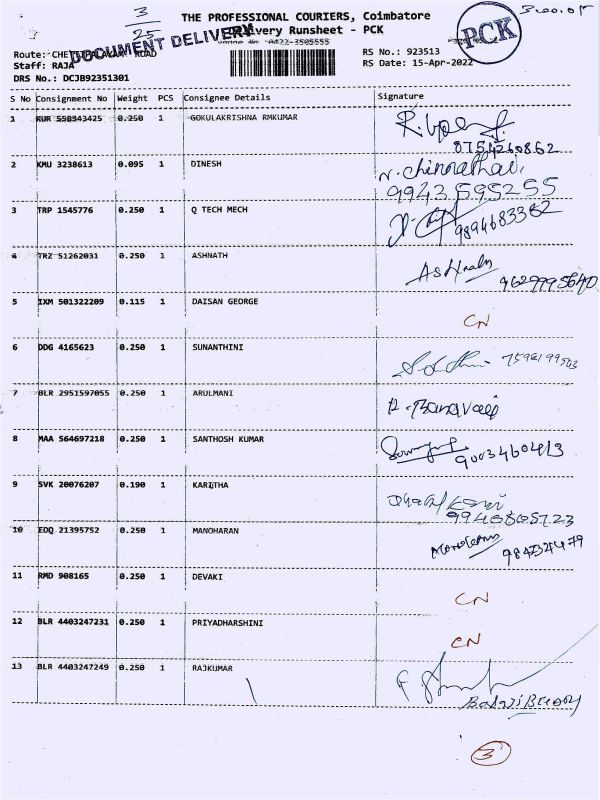 3
25
THE PROFESSIONAL COURIERS, Coimbatore
Delivery Runsheet - PCK
Phone No: 0422-3505555
DOCUMENT DELIVERY
PCK
Route: CHETTIPALAYAM ROAD
Staff: RAJA
DRS No.: DCJB92351301
RS No.: 923513
RS Date: 15-Apr-2022
S No Consignment No Weight PCS Consignee Details Signature
1 KUR 558343425 0.250 1 GOKULAKRISHNA RMKUMAR
8754260862
2 KMU 3238613 0.095 1 DINESH N. Chinnathai,
9943595255
3 TRP 1545776 0.250 1 Q TECH MECH 9894683362
4 TRZ 51262031 0.250 1 ASHNATH 9629995640
5 IXM 501322209 0.115 1 DAISAN GEORGE CN
6 DDG 4165623 0.250 1 SUNANTHINI
7 BLR 2951597055 0.250 1 ARULMANI
8 MAA 564697218 0.250 1 SANTHOSH KUMAR
9 SVK 20076207 0.190 1 KARITHA
10 EDQ 21395752 0.250 1 MANOHARAN
11 RMD 908165 0.250 1 DEVAKI CN
12 BLR 4403247231 0.250 1 PRIYADHARSHINI CN
13 BLR 4403247249 0.250 1 RAJKUMAR
3